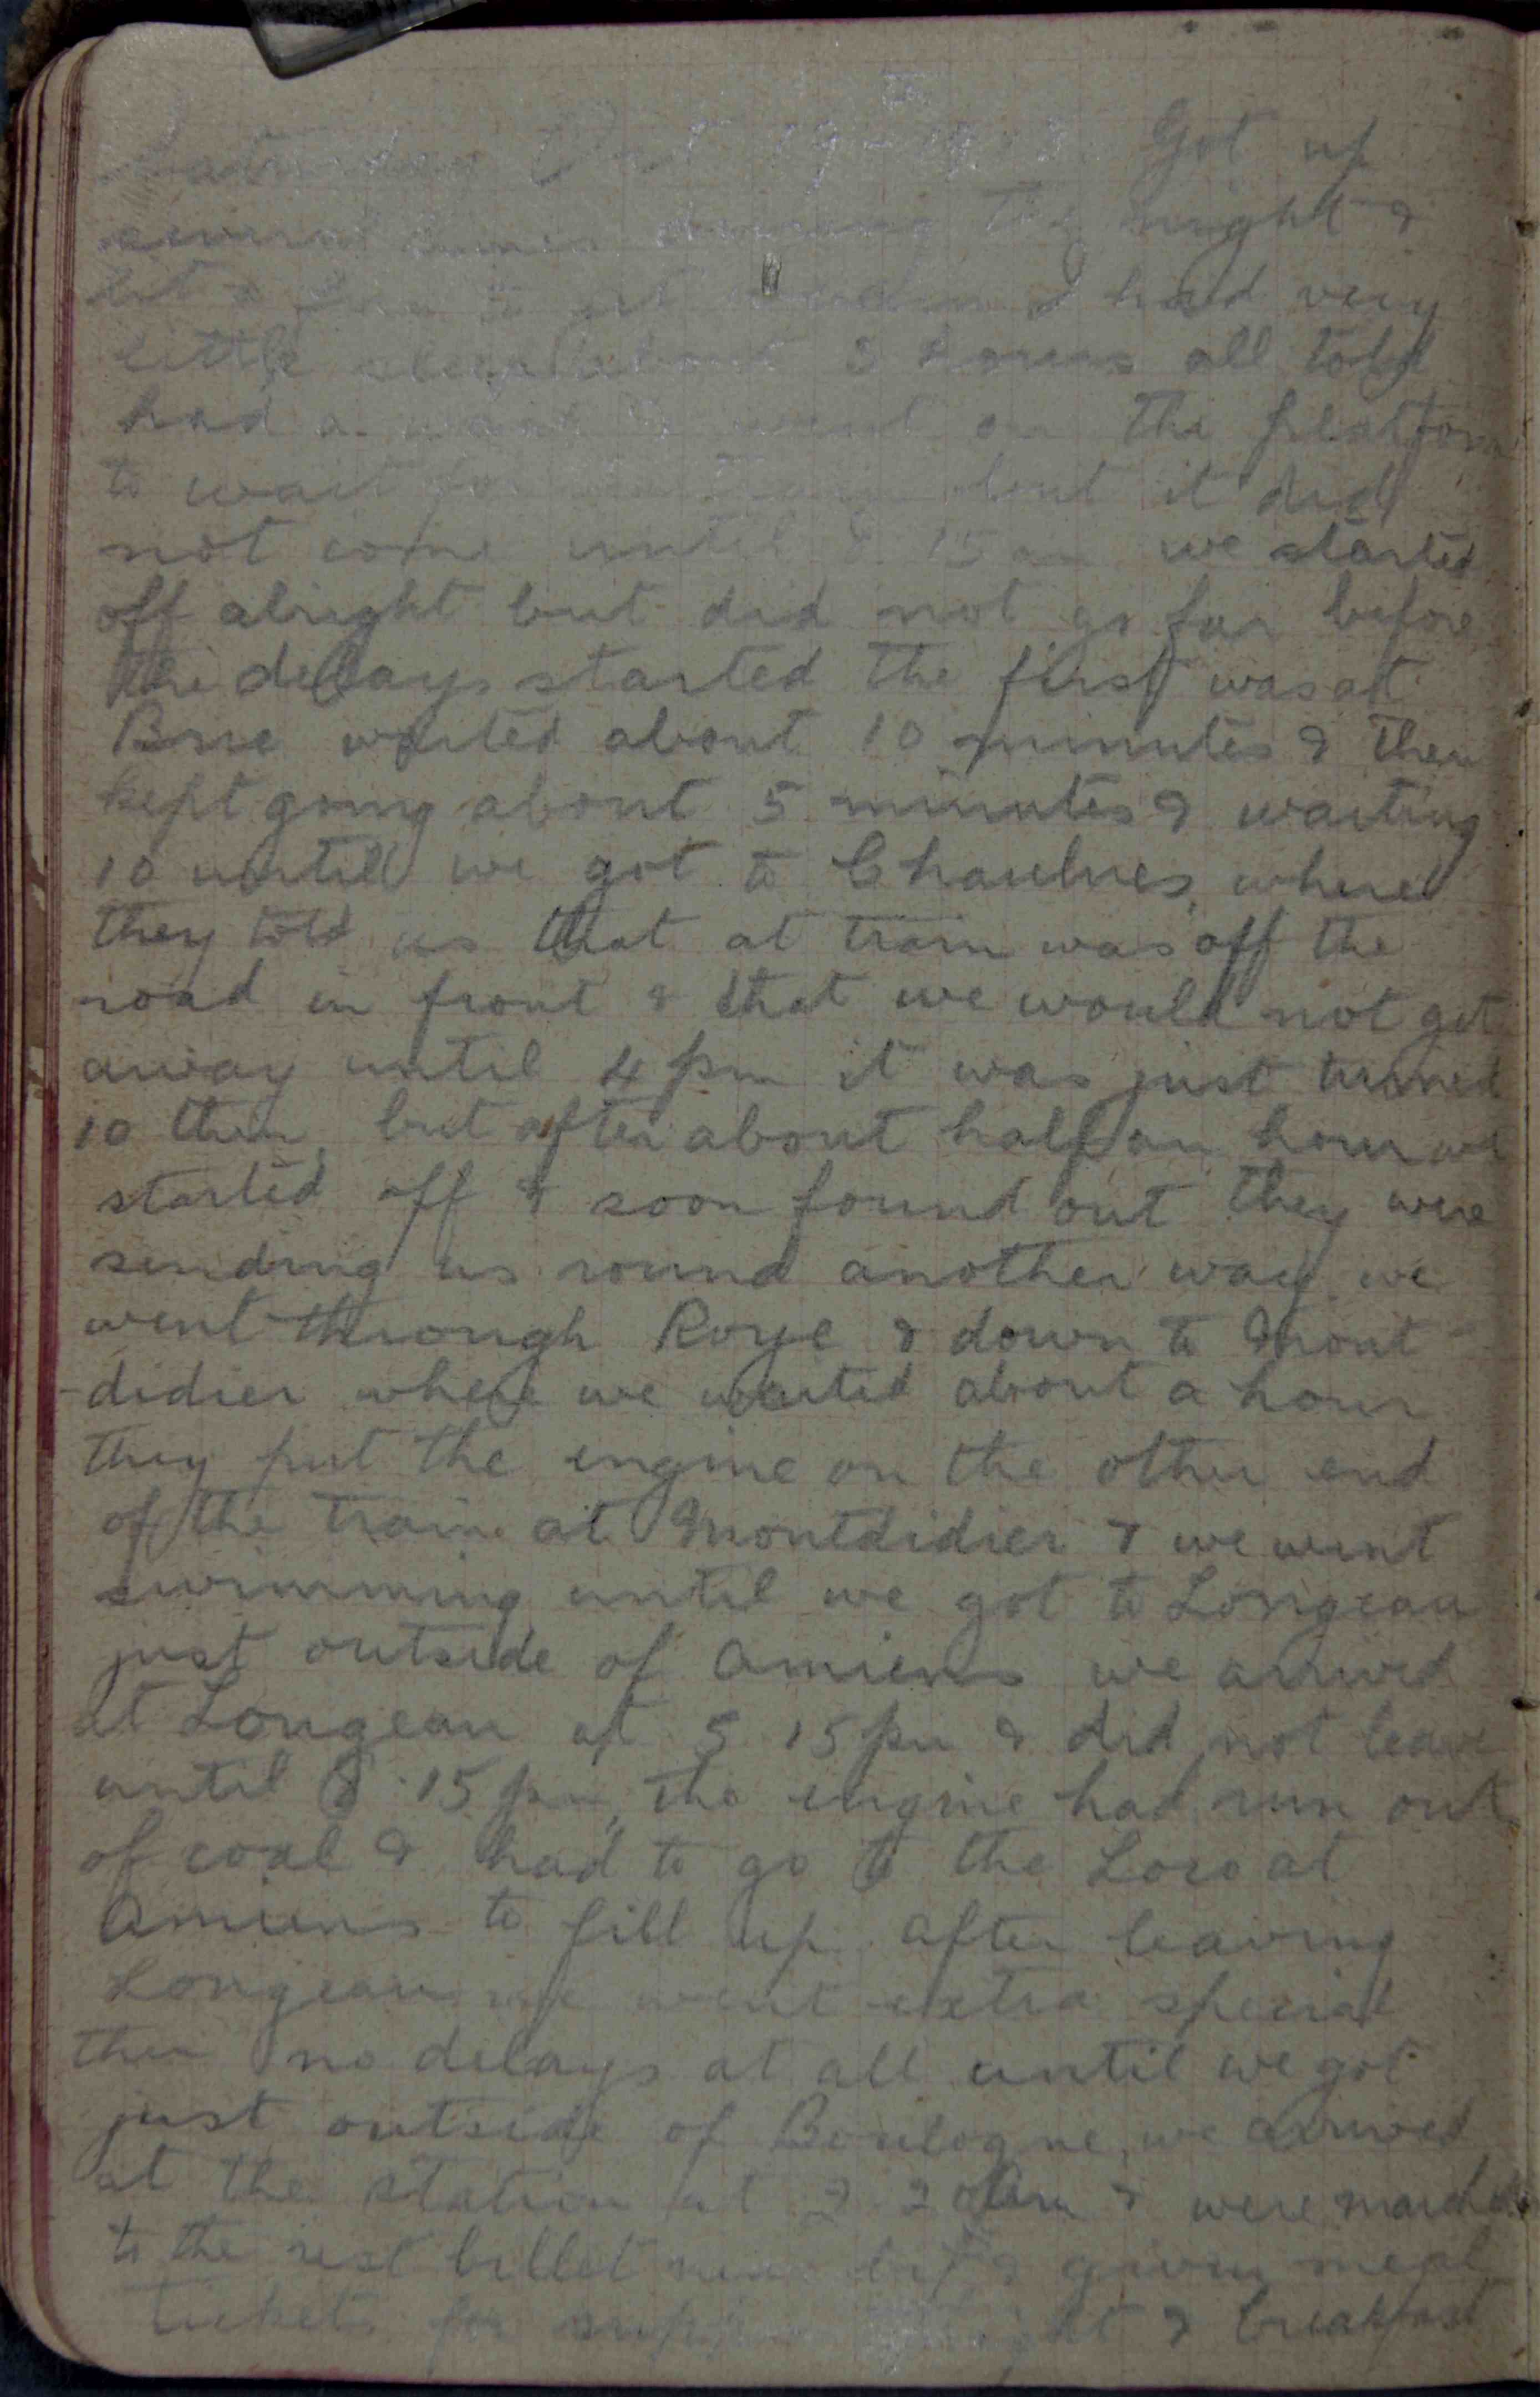 Saturday Oct 19 - 1918 Got up
several times during the night &
lit a fire to get I had very
little sleep about 3 hours all told
had a wash & went on the platform
to wait for the train but it did
not come until 8. 15 am we started
off alright but did not go far before
the delays started the first was at
Brie waited about 10 minutes & then
kept going about 5 minutes & waiting
10 until we got to Chaulnes, where
they told us that at train was off the
road in front & that we would not get
away until 4 pm it was just turned
10 then, but after about half an hour we
started off & soon found out they were
sending us round another way. we
went through Roye & down to Mont
-didier where we waited about a hour
they put the engine on the other end
of the train at Montdidier & we went
swimming until we got to Longeau
just outside of Amiens we arrived
at Longeau at 5 15 pm & did not leave
until 8. 15 pm, the engine had run out
of coal & had to go to the Loco at
Amiens to fill up. after leaving
Longeau we went extra special
then no delays at all until we got
just outside of Boulogne, we arrived
at the station at 2. 20 am & were marched
to the rest billet near by & given meal
tickets for supper & breakfast